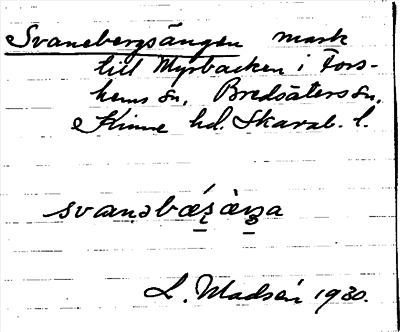 Svanebergsängen mark
till Myrbacken i Fors-
hems sn, Bredsäters sn,
Kinne hd. Skarab. l.
svanəbæ´r̤ àŋa
L. Madsén 1930.